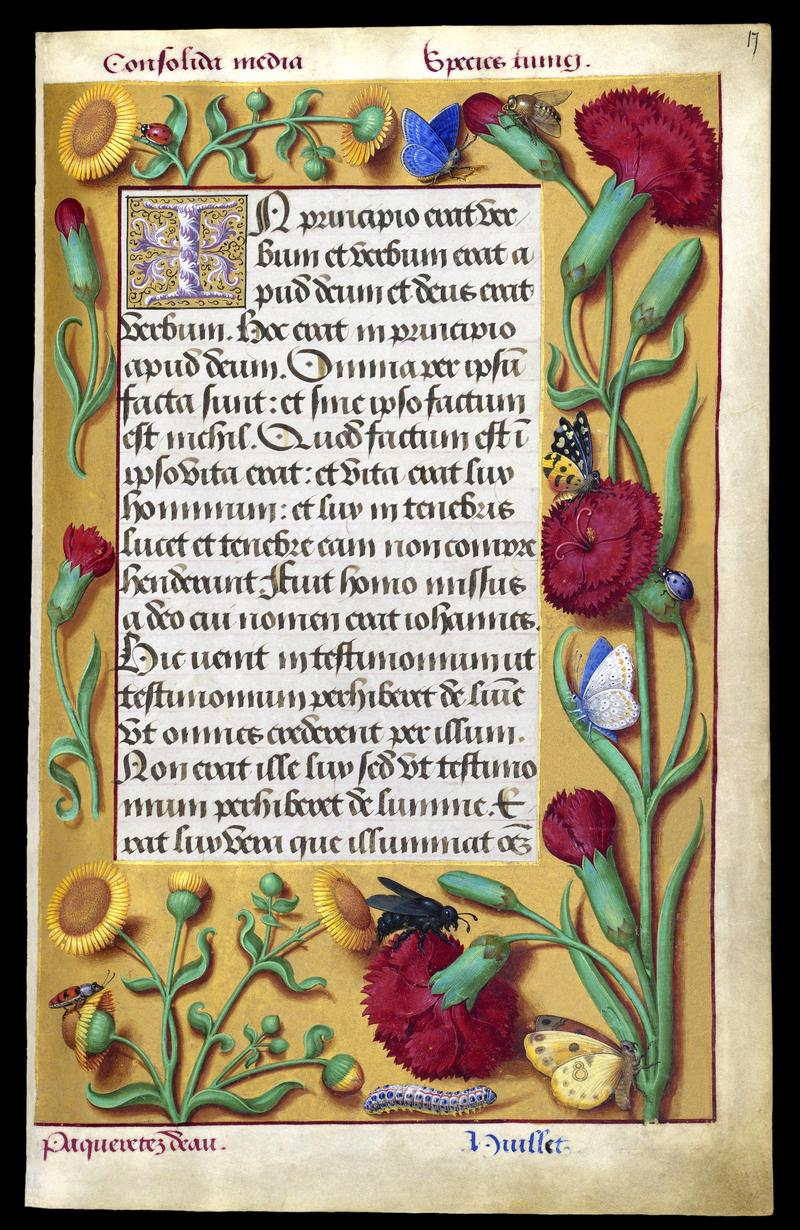 17
Consolida media
Species tunici.
IN principio erat ver
bum et verbum erat a
pud deum et deus erat
verbum. Hoc erat in principio
apud deum. Omnia per ipsū
facta sunt: et sine ipso factum
est nichil. Quod factum est ī
ipso vita erat: et vita erat lux
hominum: et lux in tenebris
lucet et tenebre eam non compre
henderunt Fuit homo missus
a deo cui nomen erat iohannes.
Hic venit in testimonium ut
testimonium perhiberet de lumīe
Vt omnes crederent per illum.
Non erat ille lux sed vt testimo
nium perhiberet de lumine. E
rat lux vera que illuminat oēs
Paqueretez deau.